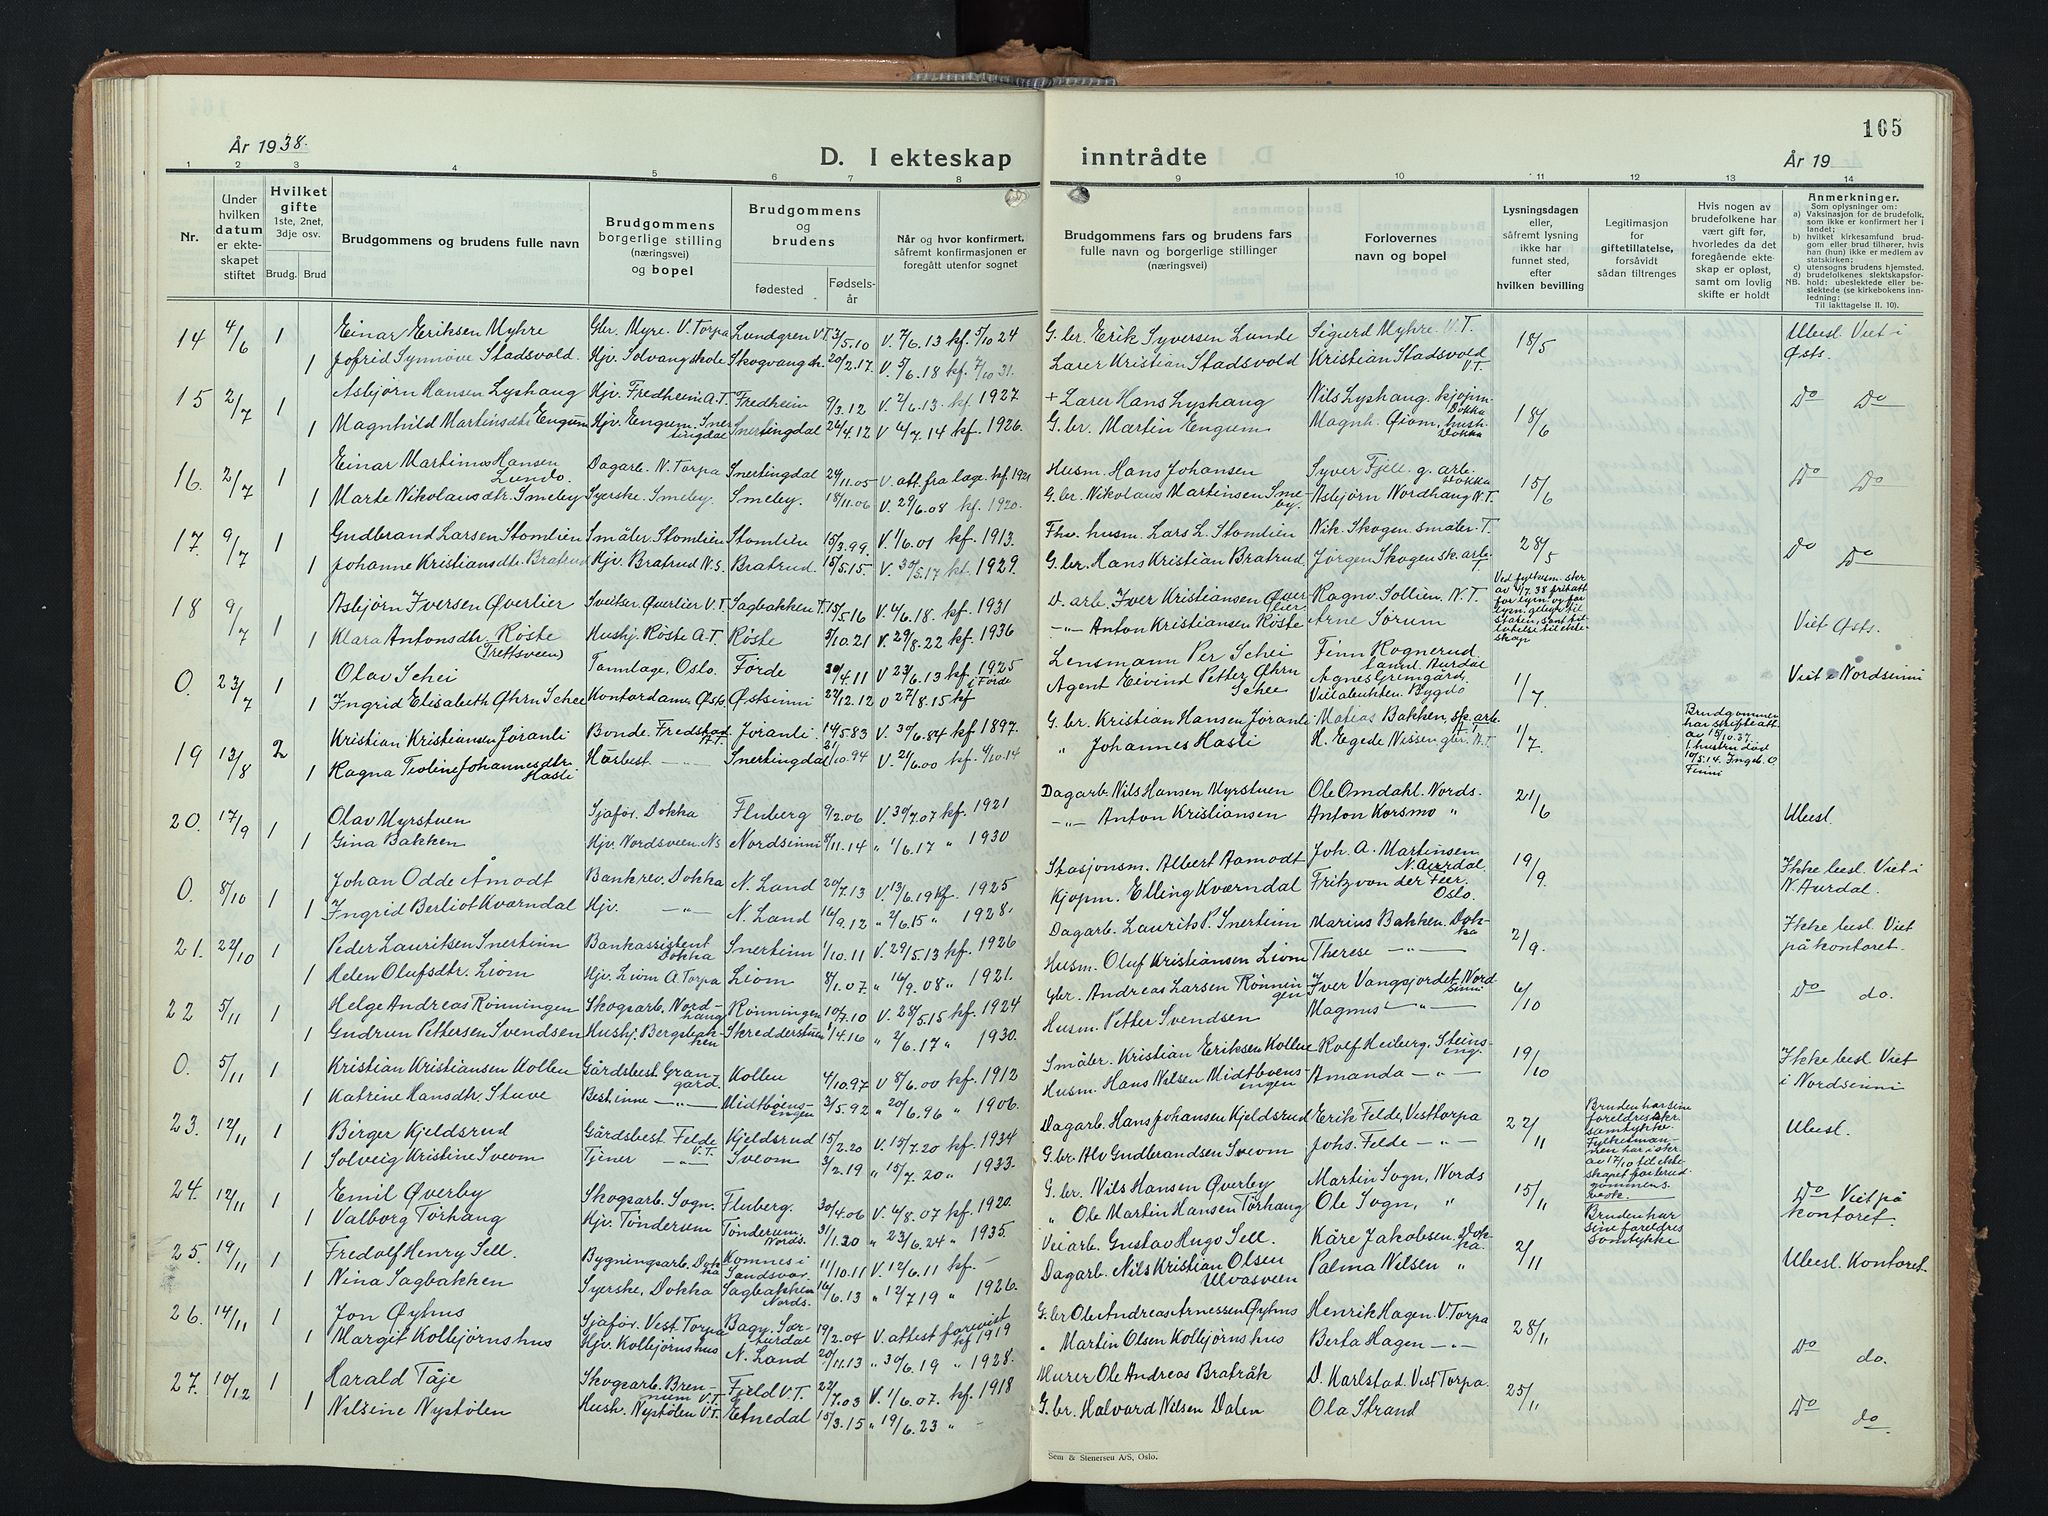 105
År 1938.
D. I ekteskap inntrådte
År 19
1 2 3 4 5 6 7 8 9 10 11 12 13 14
Nr.
Under hvilken datum er ekteskapet stiftet
Hvilket gifte
1ste, 2net, 3dje osv.
Brudg. Brud
Brudgommens og brudens fulle navn
Brudgommens borgerlige stilling (næringsvei) og bopel
Brudgommens og brudens
fødested Fødselsår
Når og hvor konfirmert, såfremt konfirmasjonen er foregått utenfor sognet
Brudgommens fars og brudens fars fulle navn og borgerlige stillinger (næringsvei)
Forlovernes navn og bopel
Lysningsdagen eller, såfremt lysning ikke har funnet sted, efter hvilken bevilling
Legitimasjon for giftetillatelse, forsåvidt sådan tiltrenges
Hvis nogen av brudefolkene har vært gift før, hvorledes da det foregående ekteskap er opløst, samt om lovlig skifte er holdt
Anmerkninger.
Som oplysninger om:
a) Vaksinasjon for de brudefolk, som ikke er konfirmert her i landet;
b) hvilket kirkesamfund brudgom eller brud tilhører, hvis han (hun) ikke er medlem av statskirken;
c) utensogns brudens hjemsted.
d) brudefolkenes slektskapsforhold: ubeslektede eller beslektede (se kirkebokens innledning:
NB. Til iakttagelse II. 10).
14 4/6 1 Einar Eriksen Myhre Gbr. Myre. V. Torpa Lundgren V.T. 3/5.10 V. 7/6.13 kf. 5/10 24 G.br. Erik Syversen Lunde Sigurd Myhre V.T. 18/5 Ubesl. Viet i Østs.
1 Jofrid Synnøve Stadsvold. Hjv. Solvang skole Skogvang sk. 20/2.17. V. 5/6.18 kf. 4/10 31. Lærer Kristian Stadsvold Kristian Stadsvold V.T.
15 2/7 1 Asbjørn Hansen Lyshaug Hjv. Fredheim A.T. Fredheim 9/3.12 V. 2/6.13. kf. 1927 + Lærer Hans Lyshaug Nils Lyshaug. kjøpm. Dokka 18/6 Do Do
1 Magnhild Martinsdtr Engum Hjv. Engum. Snertingdal Snertingdal 24/4.12 V 4/7.14 kf. 1926. G.br. Martin Engum Magnh. Øiom, hush. Dokka
16. 2/7 1 Einar Martinus Hansen Lundo. Dagarb. N. Torpa Snertingdal 24/11.05 V. att. fra læge. kf. 1921 Husm. Hans Johansen Syver Fjell. g. arb. Dokka 15/6 Do Do
1 Marte Nikolausdtr. Smeby Syerske. Smeby. Smeby. 18/11.06 V. 29/6.08 kf. 1920. G.br. Nikolaus Martinsen Smeby. Asbjørn Nordhaug N.T.
17. 9/7 1 Gudbrand Larsen Stomlien Småbr. Stomlien Stomlien 15/3.99. V. 1/6.01 kf. 1913. Fhv. husm. Lars L. Stomlien Nik. Skogen småbr. T. 28/5 Do Do
1 Johanne Kristiansdtr. Bratrud Hjv. Bratrud N.S. Bratrud. 15/5.15. V. 30/5.17 kf. 1929. G.br. Hans Kristian Bratrud Jørgen Skogen sk. arb. T.
18 9/7 1 Asbjørn Iversen Øverlier Sveitser Øverlier V.T. Sagbakken T. 15/5.16 V. 4/6.18. kf. 1931 D. arb. Iver Kristiansen Øverlier Ragnv. Sollien. N.T. Ved fylkesm. skr av 4/7.38 fritatt for lysn. og for lysn. gebyr til staten, samt tillatelse til ekteskap Viet Østs.
1 Klara Antonsdtr. Røste (Trettsveen) Hushj. Røste A.T. Røste 3/10.21 V. 29/8.22 kf. 1936 -"- Anton Kristiansen Røste Arne Sørum
0. 23/7 1 Olav Schei Tannlæge, Oslo. Førde 20/4.11 V 23/6.13 kf. 1925 i Førde Lensmann Per Schei Finn Rognerud. tannl. Aurdal 1/7 Viet i Nordsinni
1 Ingrid Elisabeth Øhrn Schee Kontordame Østs. Østsinni 22/12.12 v 27/8.15 kf Agent Eivind Petter Øhrn Schee Agnes Grimgård. Bygdø
19 13/8 2 Kristian Kristiansen Jøranli Bonde. Fredstad A.T. Jøranli. 14/5 83 V. 30/6.84 kf 1897. G.br. Kristian Hansen Jøranli Matias Bakken, sk. arb. A.T. 1/7 Brudgommen har skifteatt. av 15/10.37. 1. hustru død 10/5.14. Ingeb. O. Finni
1 Ragna Teoline Johannesdtr. Hasli Hårbest. -"- Snertingdal 21/10.94 V. 21/6.00 kf. 4/10.14 " Johannes Hasli H. Egede Nissen gbr. A.T.
20. 17/9 1 Olav Myrstuen Sjåfør. Dokka Fluberg 9/2.06 V. 30/7.07 kf. 1921 Dagarb. Nils Hansen Myrstuen Ole Omdahl. Nords. 21/6 Ubesl.
1 Gina Bakken Hjv. Nordsveen. Ns Nordsinni 8/11.14 " 1/6.17 " 1930 -"- Anton Kristiansen Anton Korsmo "
0. 8/10 1 Johan Odde Åmodt Bankrev. Dokka N. Land 20/7.13 V. 13/6.19 kf. 1925 Stasjonsm. Albert Aamodt Joh. A. Martinsen N. Aurdal. 19/9. Ikke besl. Viet i N. Aurdal.
1 Ingrid Berliot Kværndal Hjv. -"- N. Land 16/9.12 " 2/6 15 " 1928. Kjøpm. Elling Kværndal Fritz von der Feer. Oslo.
21. 22/10 1 Peder Lauritsen Snertinn Bankassistent Dokka Snertinn 1/10.11 V. 29/5.13 kf. 1926 Dagarb. Laurits P. Snertinn Marius Bakken. Dokka 2/9. Ikke besl. Viet på kontoret.
1 Helen Olufsdtr. Liom Hjv. Liom A. Torpa Liom 8/1.07. " 16/9.08 " 1921. Husm. Oluf Kristiansen Liom Therese -"-
22 5/11 1 Helge Andreas Rønningen Skogsarb. Nordhaug Rønningen 10/7.10 V. 28/5.15 kf. 1924 Gbr. Andreas Larsen Rønningen Iver Vangsjordet Nordsinni 6/10 Do do.
1 Gudrun Pettersen Svendsen Hushj. Bergsbakken Skredderstuen 1/4.16 " 2/6.17 " 1930. Husm. Petter Svendsen Magnus -"-
0. 5/11 1 Kristian Kristiansen Kollen Gårdsbest. Grangård. Kollen 4/10.97 V 8/6.00 kf. 1912 Småbr. Kristian Eriksen Kollen Rolf Heiberg, Steinseng. 19/10 Ikke besl. Viet i Nordsinni
1 Katrine Hansdtr. Stuve Bestinne -"- Midtbøensengen 3/5.92 " 20/6.96 " 1906. Husm. Hans Nilsen Midtbøensengen Amanda -"-
23. 12/11 1 Birger Kjeldsrud Gårdsbest. Felde V.T. Kjeldsrud 15/2.20 V. 15/7.20 kf. 1934 Dagarb. Hans Johansen Kjeldsrud Erik Felde, Vesttorpa 22/11 Bruden har sine foreldres skr. samtykke. Fylkesmannen har i skr. av 17/10 til ekteskapet for brudgommens vedk. Ubesl.
1 Solveig Kristine Sveom Tjener -"- Sveom. 3/2.19 " 15/7.20 " 1933. G.br. Alv Gudbrandsen Sveom Johs. Felde -"-
24. 12/11 1 Emil Øverby Skogsarb. Sogn. Fluberg. 30/4.06 V. 4/8.07 kf. 1920. G.br. Nils Hansen Øverby Martin Sogn, Nords 15/11 Bruden har sine foreldres samtykke Do Viet på kontoret
1 Valborg Tørhaug Hjv. Tønderum Tønderum, Nords. 31/1.20 " 23/6.24 " 1935. " Ole Martin Hansen Tørhaug Ole Sogn, "
25. 19/11 1 Fredolf Henry Sell. Bygningsarb. Dokka Komnes i Sandsvær. 11/10.11 V. 12/6.11 kf. - Veiarb. Gustav Hugo Sell Kåre Jakobsen. Dokka. 2/11 Ubesl. Kontoret.
1 Nina Sagbakken Syerske, Dokka Sagbakken Nords. 16/6.13 " 12/7 19 " 1926. Dagarb. Nils Kristian Olsen Ulvasveen Palma Nilsen "
26. 14/11 1 Jon Øyhus Sjåfør. Vest Torpa Bagn Sør-Aurdal 19/2.04 V. attest forevist kf 1919 G.br Ole Andreas Arnessen Øyhus Henrik Hagen V. Torpa 28/11 Do do.
1 Margit Kolbjørnshus Hjv. Kolbjørnshus N. Land 20/11.13 " 30/6.19 " 1928. " Martin Olsen Kolbjørnshus Berta Hagen -"-
27. 10/12 1 Harald Tåje Skogsarb. Brennum V.T. Fjeld V.T. 22/7.03 V. 1/6.07. kf. 1918 Murer Ole Andreas Bratråk D. Karlstad. Vest Torpa. 25/11 Do do
1 Nilsine Nystølen Hush. Nystølen V.T. Etnedal 15/3.15 " 19/6.23 " - G.br. Halvard Nilsen Dalen Ola Strand
Sem & Stenersen A/S, Oslo.